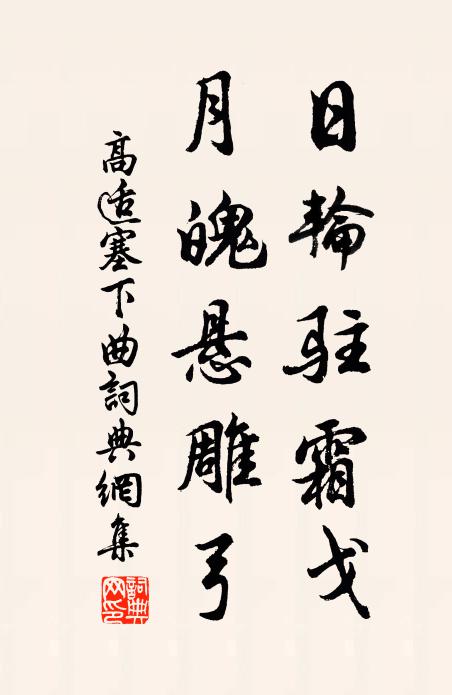 日輪駐霜戈
月魄悬雕弓
高適塞下曲詞典網集
詞典网印